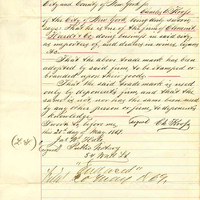 City and County of New York
Charles C. Kropf
of the City of New York being duly sworn
says: That he is one of the firm of Clement
Heerdt & Co doing business in said city
as importers of, and dealers in wines, liquors
&c.
That the above trade mark has been
adopted by such firm to be stamped or
branded upon their goods.
That the above trade mark is used
only by deponents firm, and that the
same is not, nor has the same been used
by any other person or firm to deponents
knowledge.
Sworn to before me
this 21st day of May, 1863
Notary
59 Wall St